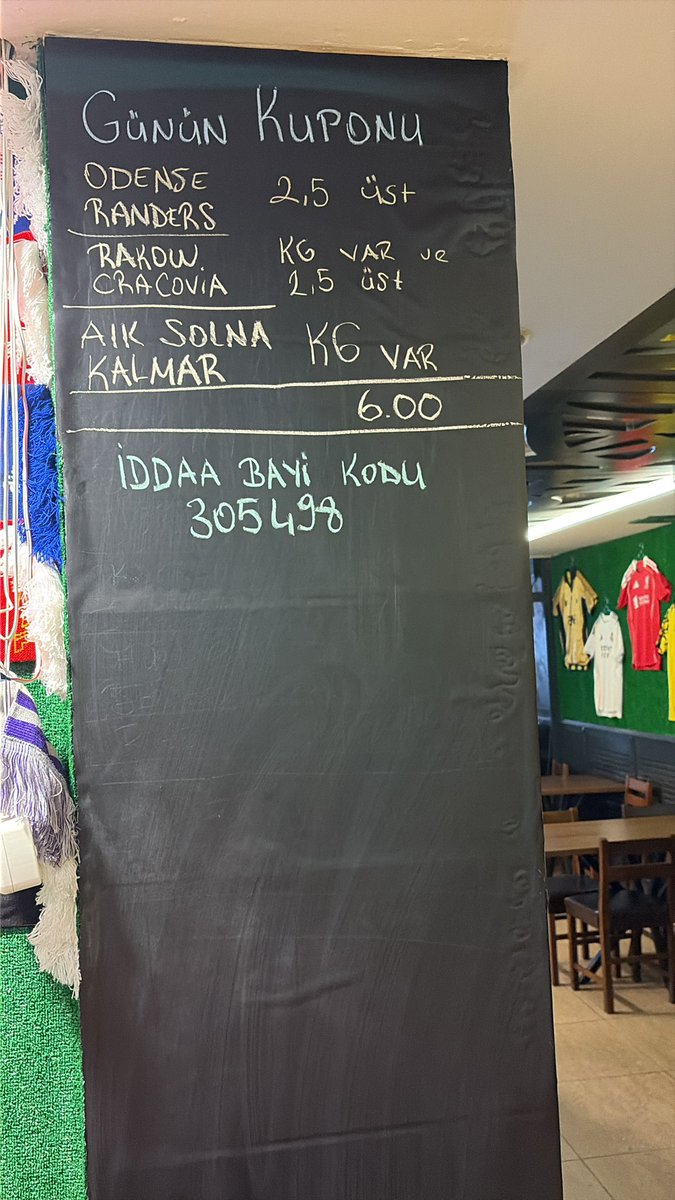 GÜNÜN KUPONU
ODENSE
RANDERS
2,5 üst
RAKOW
CRACOVIA
KG VAR ve
2,5 üst
AIK SOLNA
KALMAR
KG VAR
6.00
İDDAA BAYİ KODU
305498